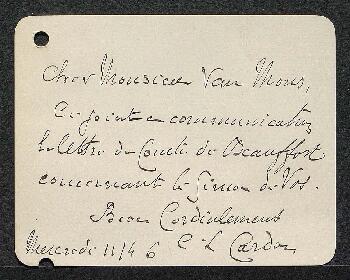 Cher Monsieur Van Mons,
Ci-joint en communication
la lettre du Comte de Beauffort
concernant le Simon de Vos.
Bien Cordialement
Ch L Cardon
Mercredi 11/4 6